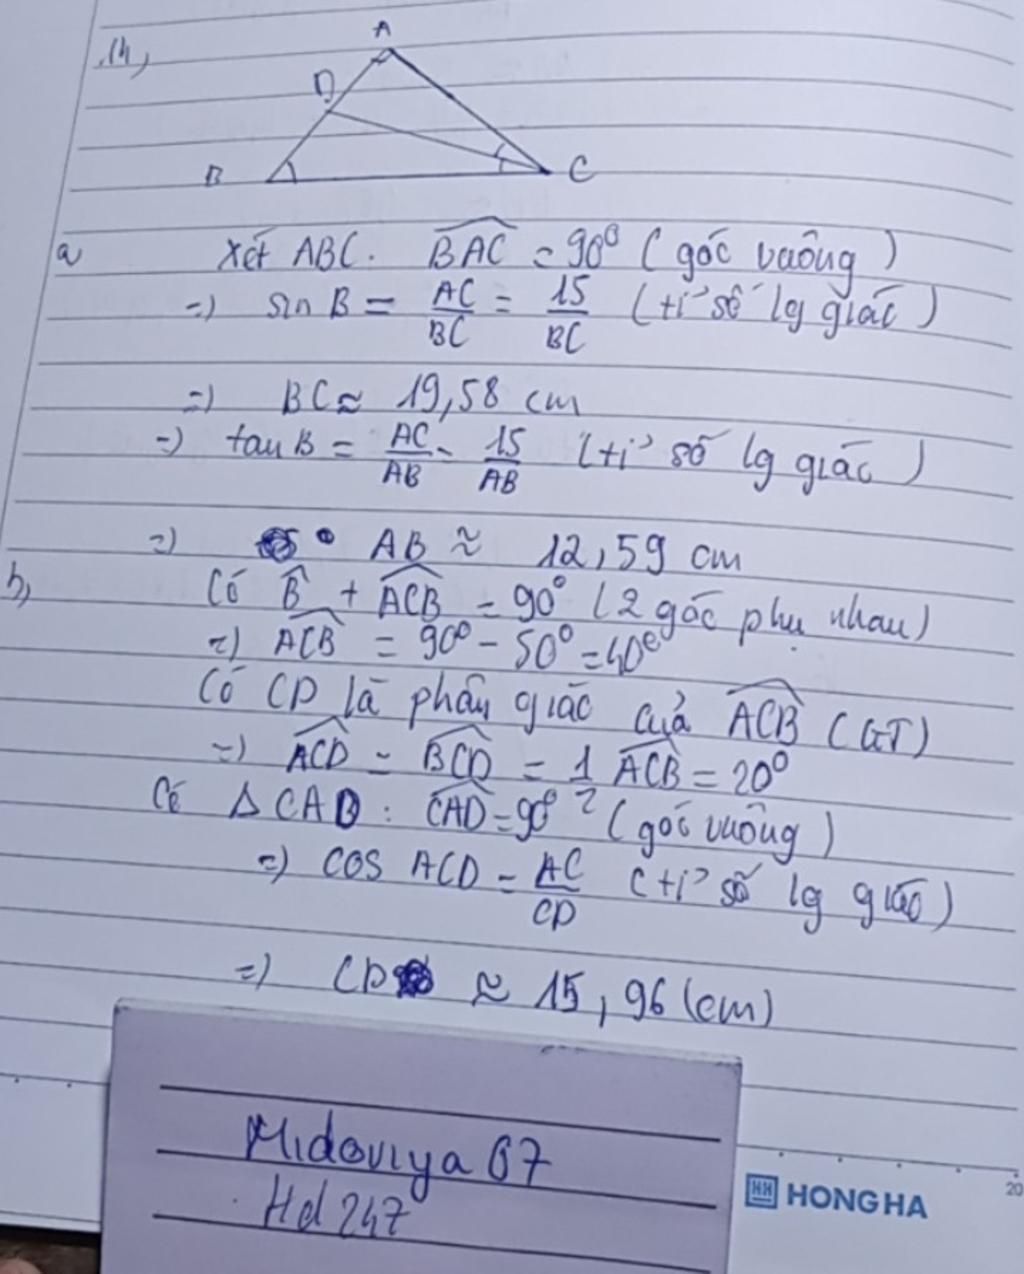 14,
A
D
B
C
a
Xét ABC. BAC = 90⁰ (góc vuông)
=) sin B = AC/BC = 15/BC (tỉ số lg giác)
=) BC ≈ 19,58 cm
=) tan B = AC/AB = 15/AB (tỉ số lg giác)
=) AB ≈ 12,59 cm
b,
Có B + ACB = 90⁰ (2 góc phụ nhau)
=) ACB = 90⁰ - 50⁰ = 40⁰
Có CD là phân giác của ACB (GT)
=) ACD = BCD = 1/2 ACB = 20⁰
Có Δ CAD : CAD = 90⁰ (góc vuông)
=) COS ACD = AC/CD (tỉ số lg giác)
=) CD ≈ 15,96 (cm)
Midoviya 07
Hd 247
HH HONG HA
20